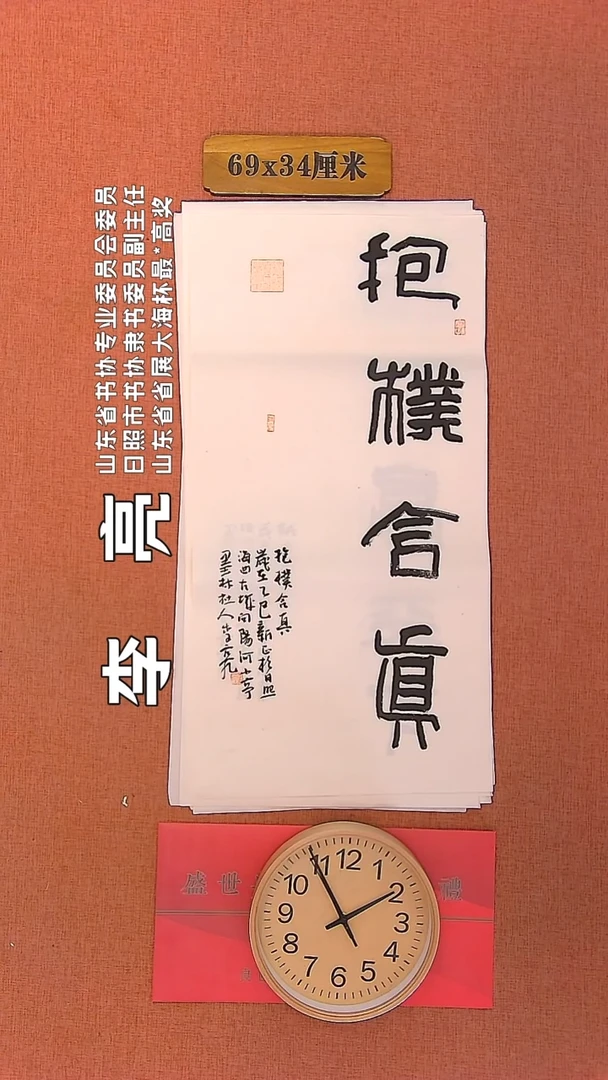 69x34厘米
山东省书协专业委员会委员
日照市书协隶书委员副主任
山东省省展大海杯最*高奖
李亮
抱樸含真
抱樸含真
歲在乙巳新正於日照
海西古城向陽河小亭
墨林杜人李亮
盛世
禮
12
1
2
3
4
5
6
7
8
9
10
11